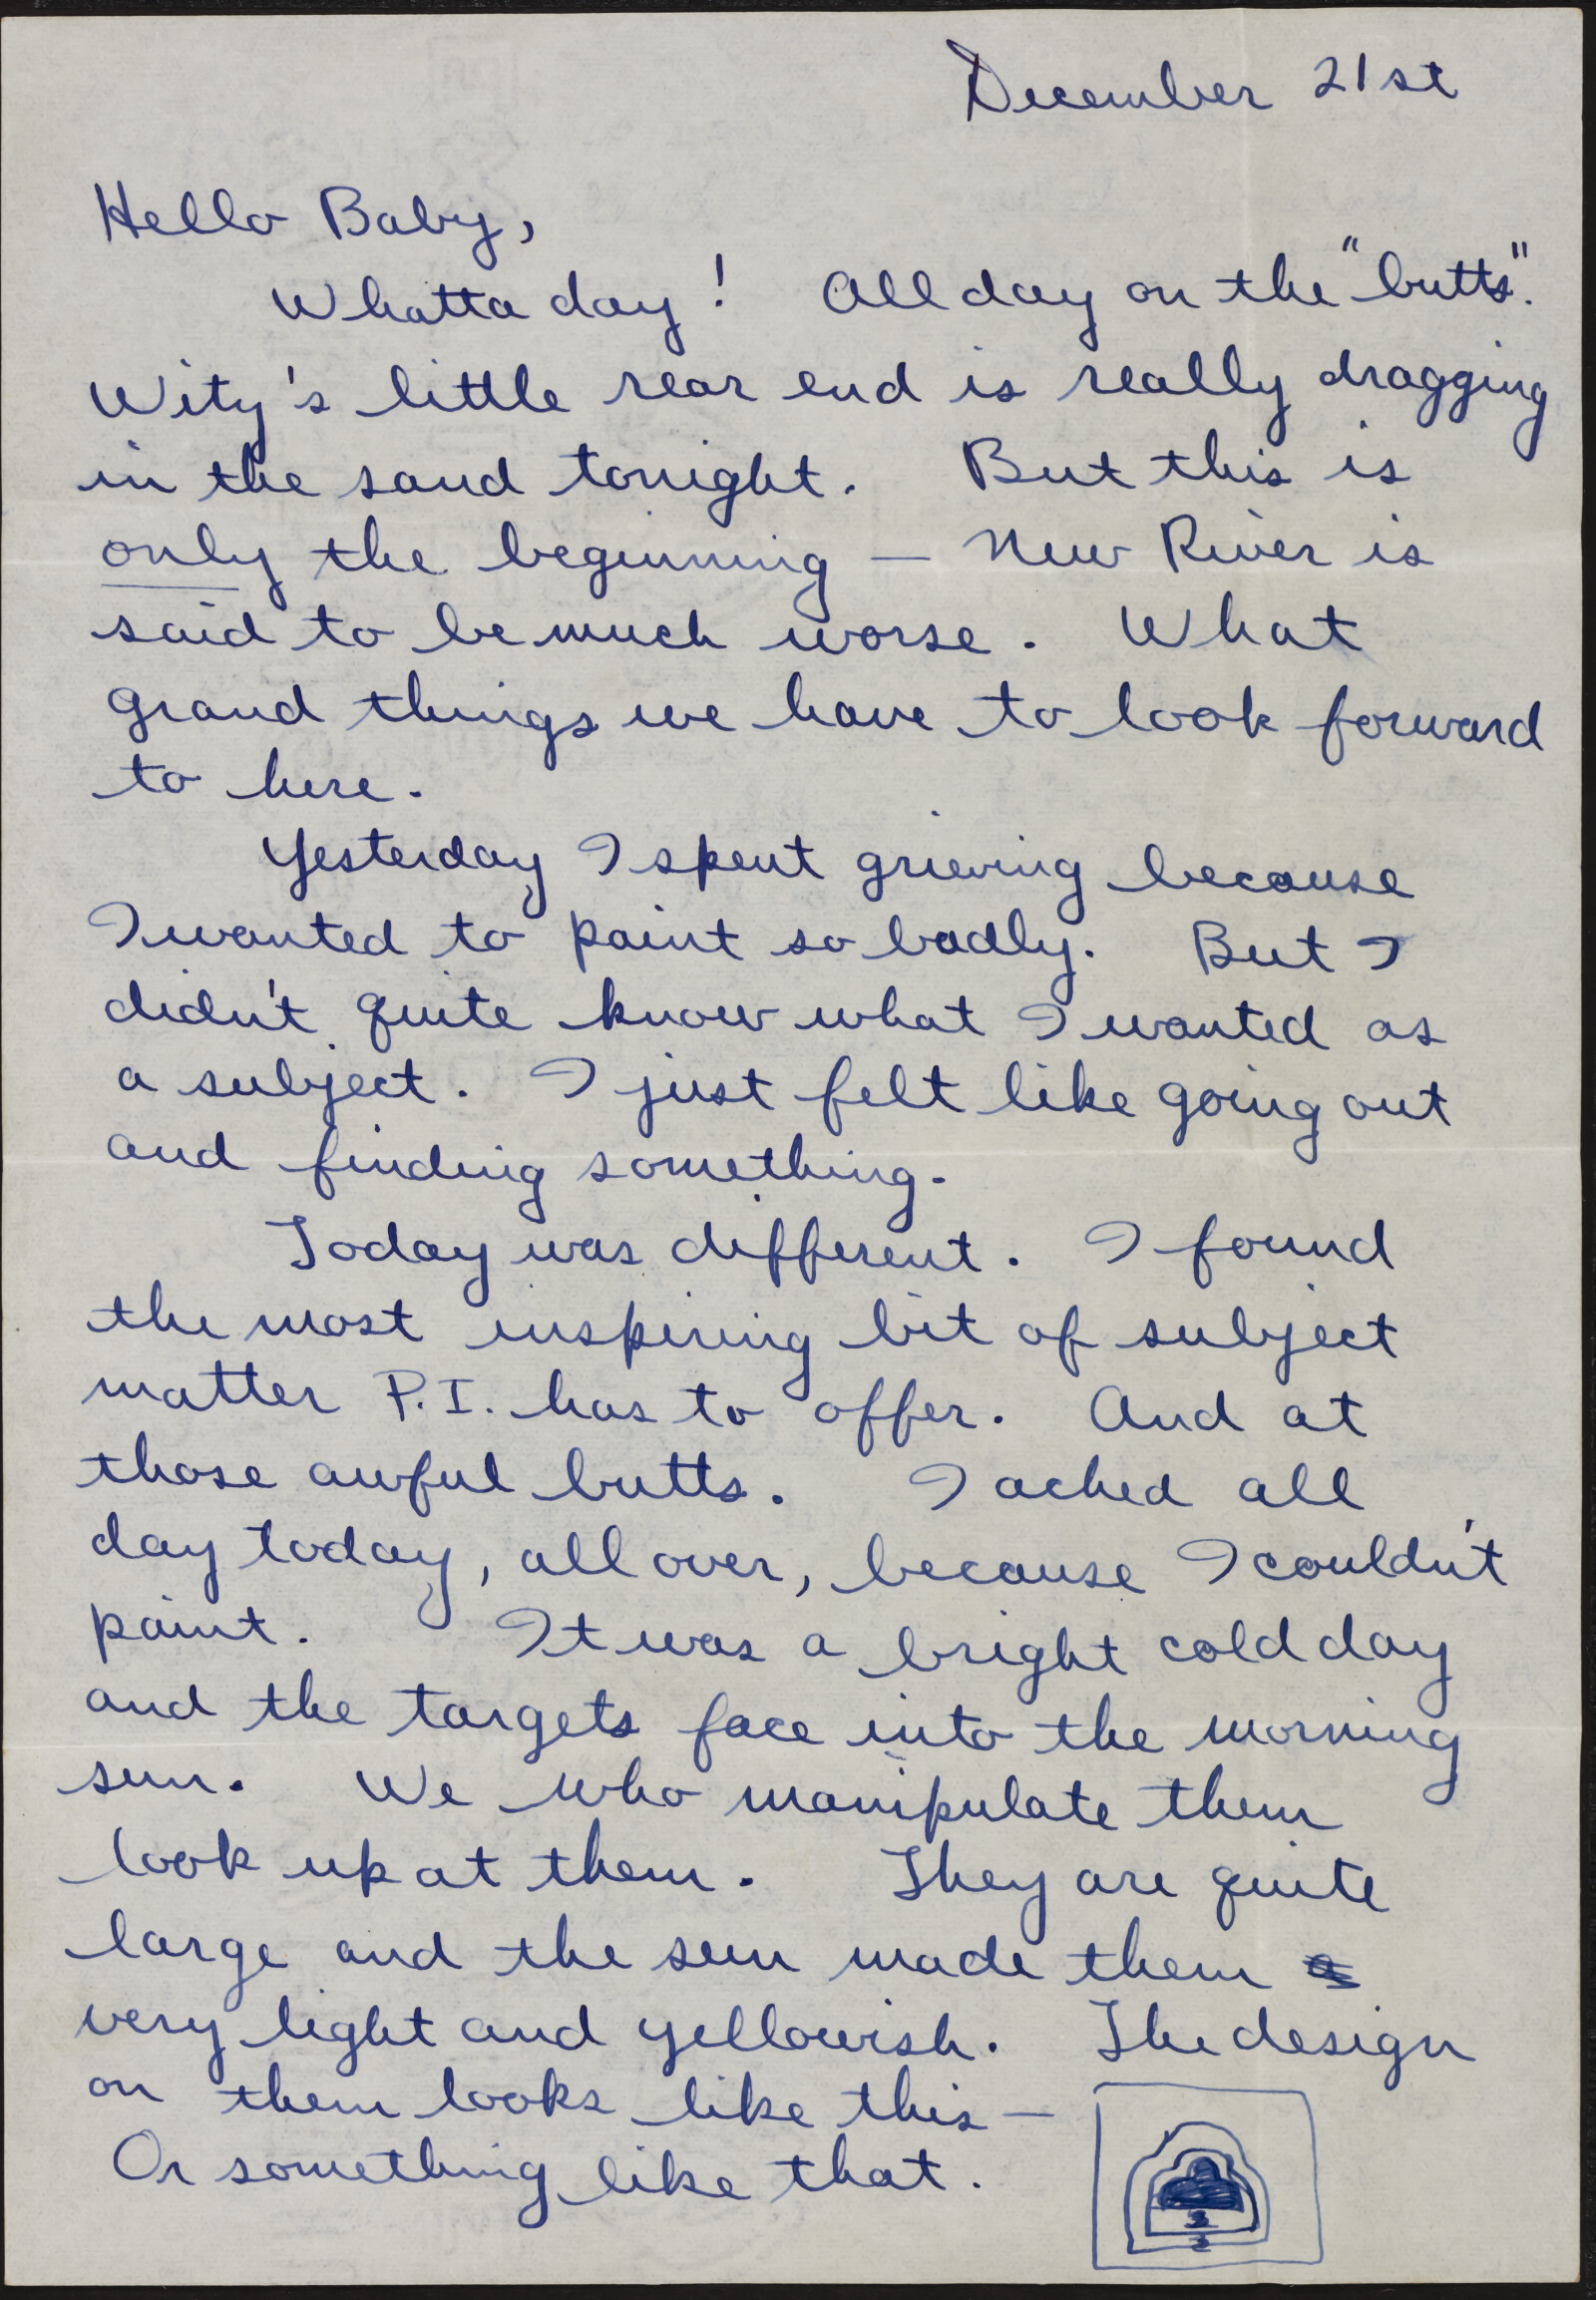 December 21st
Hello Baby,
Whatta day! All day on the "butts".
Wity's little rear end is really dragging
in the sand tonight. But this is
only the beginning — New River is
said to be much worse. What
grand things we have to look forward
to here.
Yesterday I spent grieving because
I wanted to paint so badly. But I
didn't quite know what I wanted as
a subject. I just felt like going out
and finding something.
Today was different. I found
the most inspiring bit of subject
matter P.I. has to offer. And at
those awful butts. I ached all
day today, all over, because I couldn't
paint. It was a bright cold day
and the targets face into the morning
sun. We who manipulate them
look up at them. They are quite
large and the sun made them
very light and yellowish. The design
on them looks like this —
Or something like that.